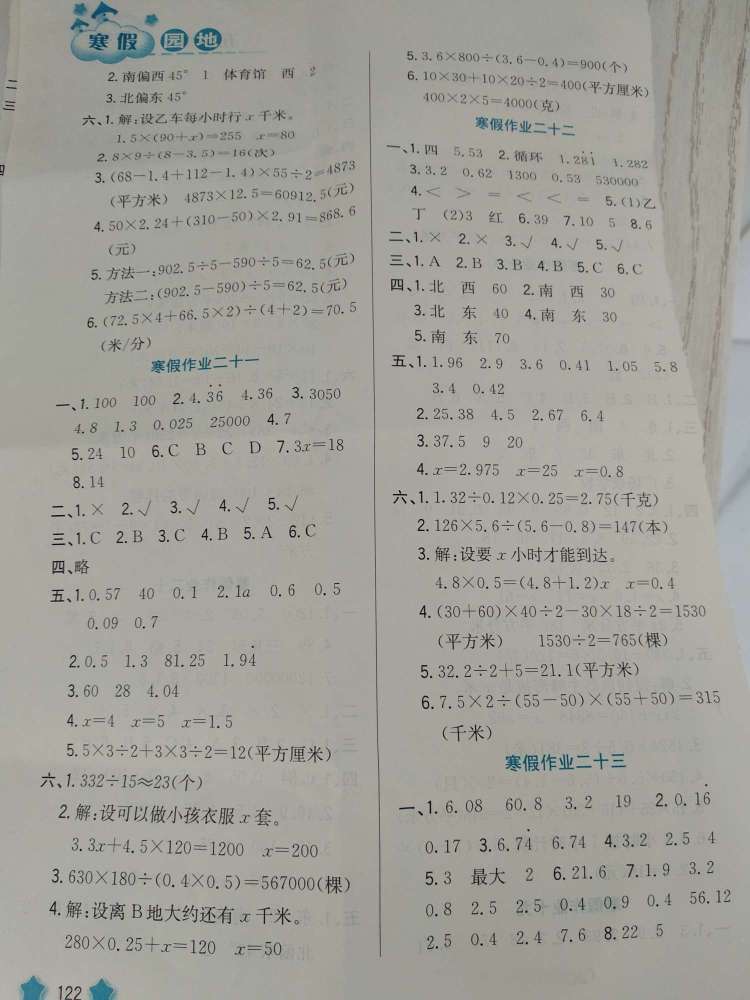 寒假园地
2.南偏西45° 1 体育馆 西 2
3.北偏东45°
六、1.解:设乙车每小时行x千米。
1.5×(90+x)=255 x=80
2.8×9÷(8-3.5)=16(次)
3.(68-1.4+112-1.4)×55÷2=4873
(平方米) 4873×12.5=60912.5(元)
4.50×2.24+(310-50)×2.91=868.6
(元)
5.方法一:902.5÷5-590÷5=62.5(元)
方法二:(902.5-590)÷5=62.5(元)
6.(72.5×4+66.5×2)÷(4+2)=70.5
(米/分)
寒假作业二十一
一、1.100 100 2.4.3̇6̇ 4.36 3.3050
4.8 1.3 0.025 25000 4.7
5.24 10 6.C B C D 7.3x=18
8.14
二、1.× 2.√ 3.√ 4.√ 5.√
三、1.C 2.B 3.C 4.B 5.A 6.C
四、略
五、1.0.57 40 0.1 2.1a 0.6 0.5
0.09 0.7
2.0.5 1.3 81.25 1.94̇
3.60 28 4.04
4.x=4 x=5 x=1.5
5.5×3÷2+3×3÷2=12(平方厘米)
六、1.332÷15≈23(个)
2.解:设可以做小孩衣服x套。
3.3x+4.5×120=1200 x=200
3.630×180÷(0.4×0.5)=567000(棵)
4.解:设离B地大约还有x千米。
280×0.25+x=120 x=50
122
5.3.6×800÷(3.6-0.4)=900(个)
6.10×30+10×20÷2=400(平方厘米)
400×2×5=4000(克)
寒假作业二十二
一、1.四 5.53 2.循环 1.28̇1̇ 1.282
3.3.2 0.62 1300 0.53 530000
4.< > = < < = 5.(1)乙
丁 (2)3 红 6.39 7.10 5 8.6
二、1.× 2.× 3.√ 4.√ 5.√
三、1.A 2.B 3.B 4.B 5.C 6.C
四、1.北 西 60 2.南 西 30
3.北 东 40 4.南 东 30
5.南 东 70
五、1.1.96 2.9 3.6 0.41 1.05 5.8
3.4 0.42
2.25.38 4.5 2.67 6.4
3.37.5 9 20
4.x=2.975 x=25 x=0.8
六、1.1.32÷0.12×0.25=2.75(千克)
2.126×5.6÷(5.6-0.8)=147(本)
3.解:设要x小时才能到达。
4.8×0.5=(4.8+1.2)x x=0.4
4.(30+60)×40÷2-30×18÷2=1530
(平方米) 1530÷2=765(棵)
5.32.2÷2+5=21.1(平方米)
6.7.5×2÷(55-50)×(55+50)=315
(千米)
寒假作业二十三
一、1.6.08 60.8 3.2 19 2.0.16̇
0.17 3.6.74̇ 6.74 4.3.2 2.5 4
5.3 最大 2 6.21.6 7.1.9 3.2
0.8 2.5 2.5 0.4 0.9 0.4 56.12
2.5 0.4 2.4 7.6 8.22 5